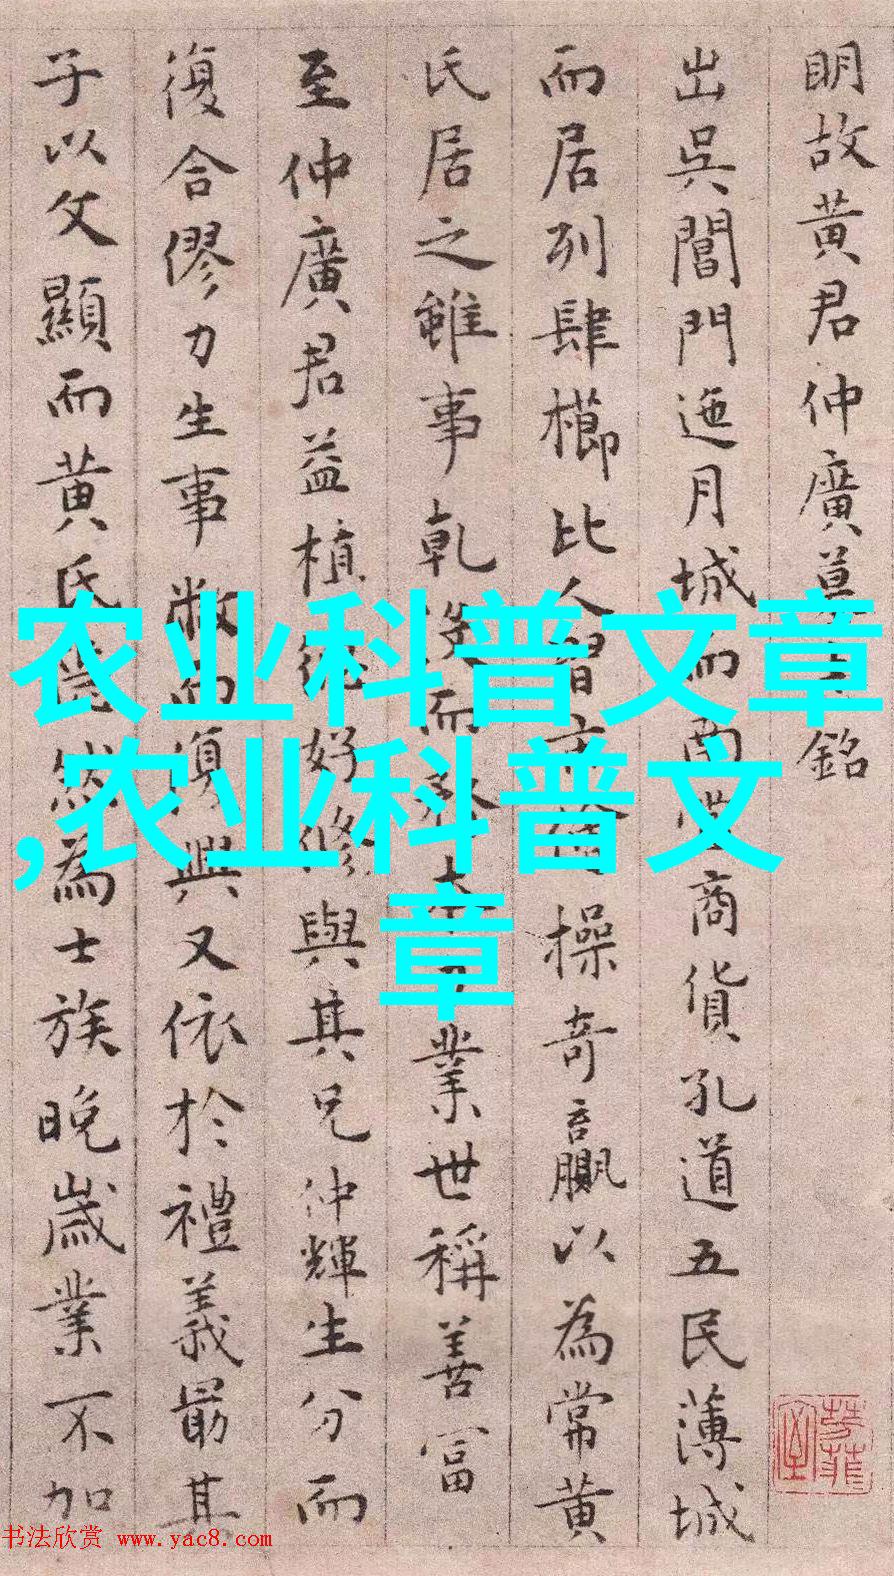 明故黄君仲廣墓 銘
出吳閶門迤月城而南 商貨孔道五民薄城
而居列肆櫛比人習 操奇贏以為常黄
氏居之雖事乾没而 業世稱善富
至仲廣君益植 好修與其兄仲輝生分而
復合僇力生事 而復興又依於禮義最其
子以文顯而黄氏 然為士族晚歲業不加
农业科普文章
,农业科普文
章
书法欣赏 www.yac8.com